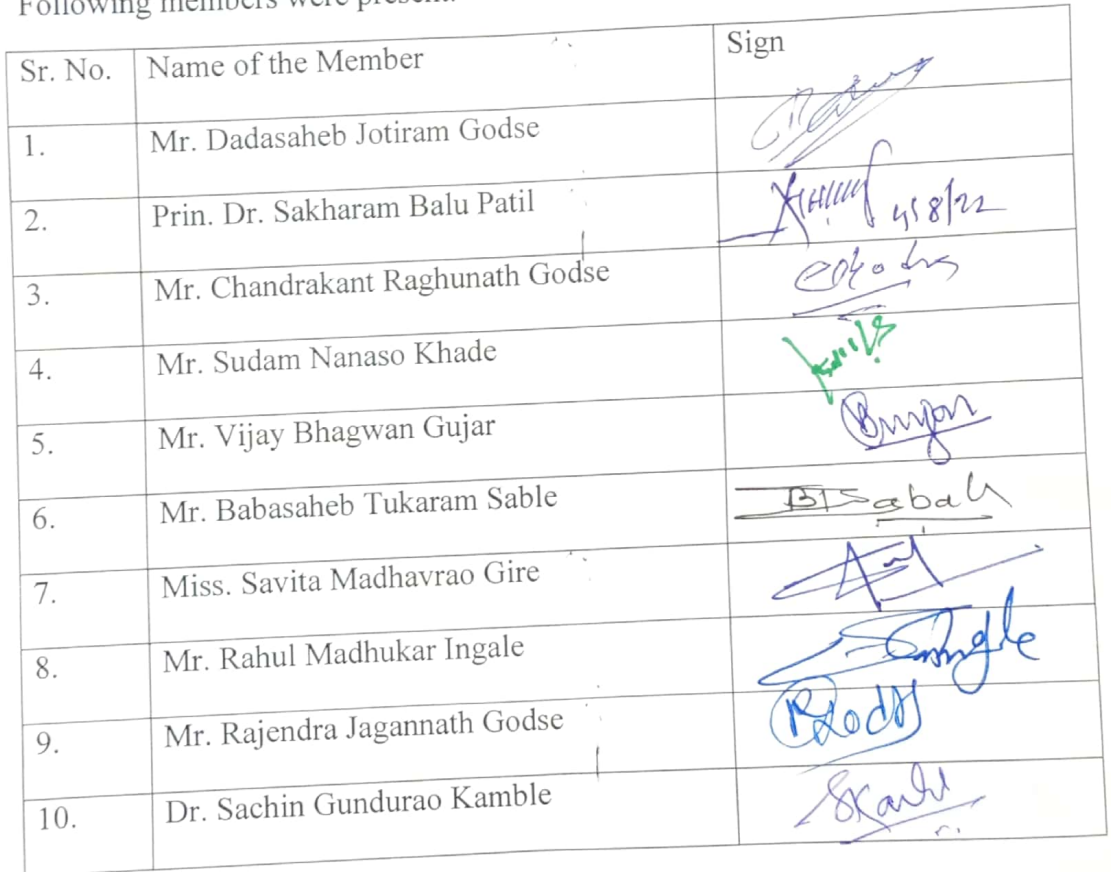 Following members were present.
Sr. No. Name of the Member Sign
1. Mr. Dadasaheb Jotiram Godse
2. Prin. Dr. Sakharam Balu Patil
3. Mr. Chandrakant Raghunath Godse
4. Mr. Sudam Nanaso Khade
5. Mr. Vijay Bhagwan Gujar
6. Mr. Babasaheb Tukaram Sable
7. Miss. Savita Madhavrao Gire
8. Mr. Rahul Madhukar Ingale
9. Mr. Rajendra Jagannath Godse
10. Dr. Sachin Gundurao Kamble